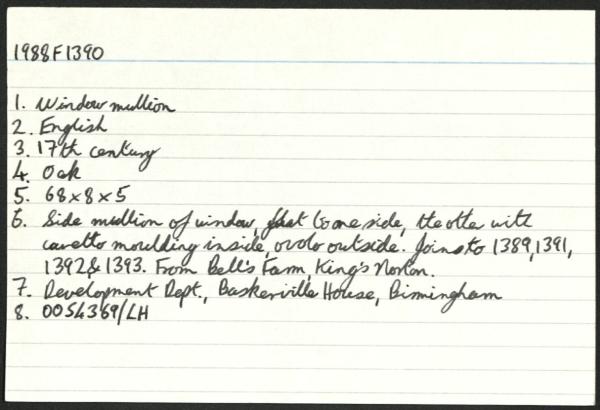 1988F1390
1. Window mullion
2. English
3. 17th century
4. Oak
5. 68x8x5
6. Side mullion of window, flat to one side, the other with
cavetto moulding inside, ovolo outside. Joins to 1389, 1391,
1392 & 1393. From Bell's Farm King's Norton.
7. Development Dept., Baskerville House, Birmingham
8. 0054369/LH